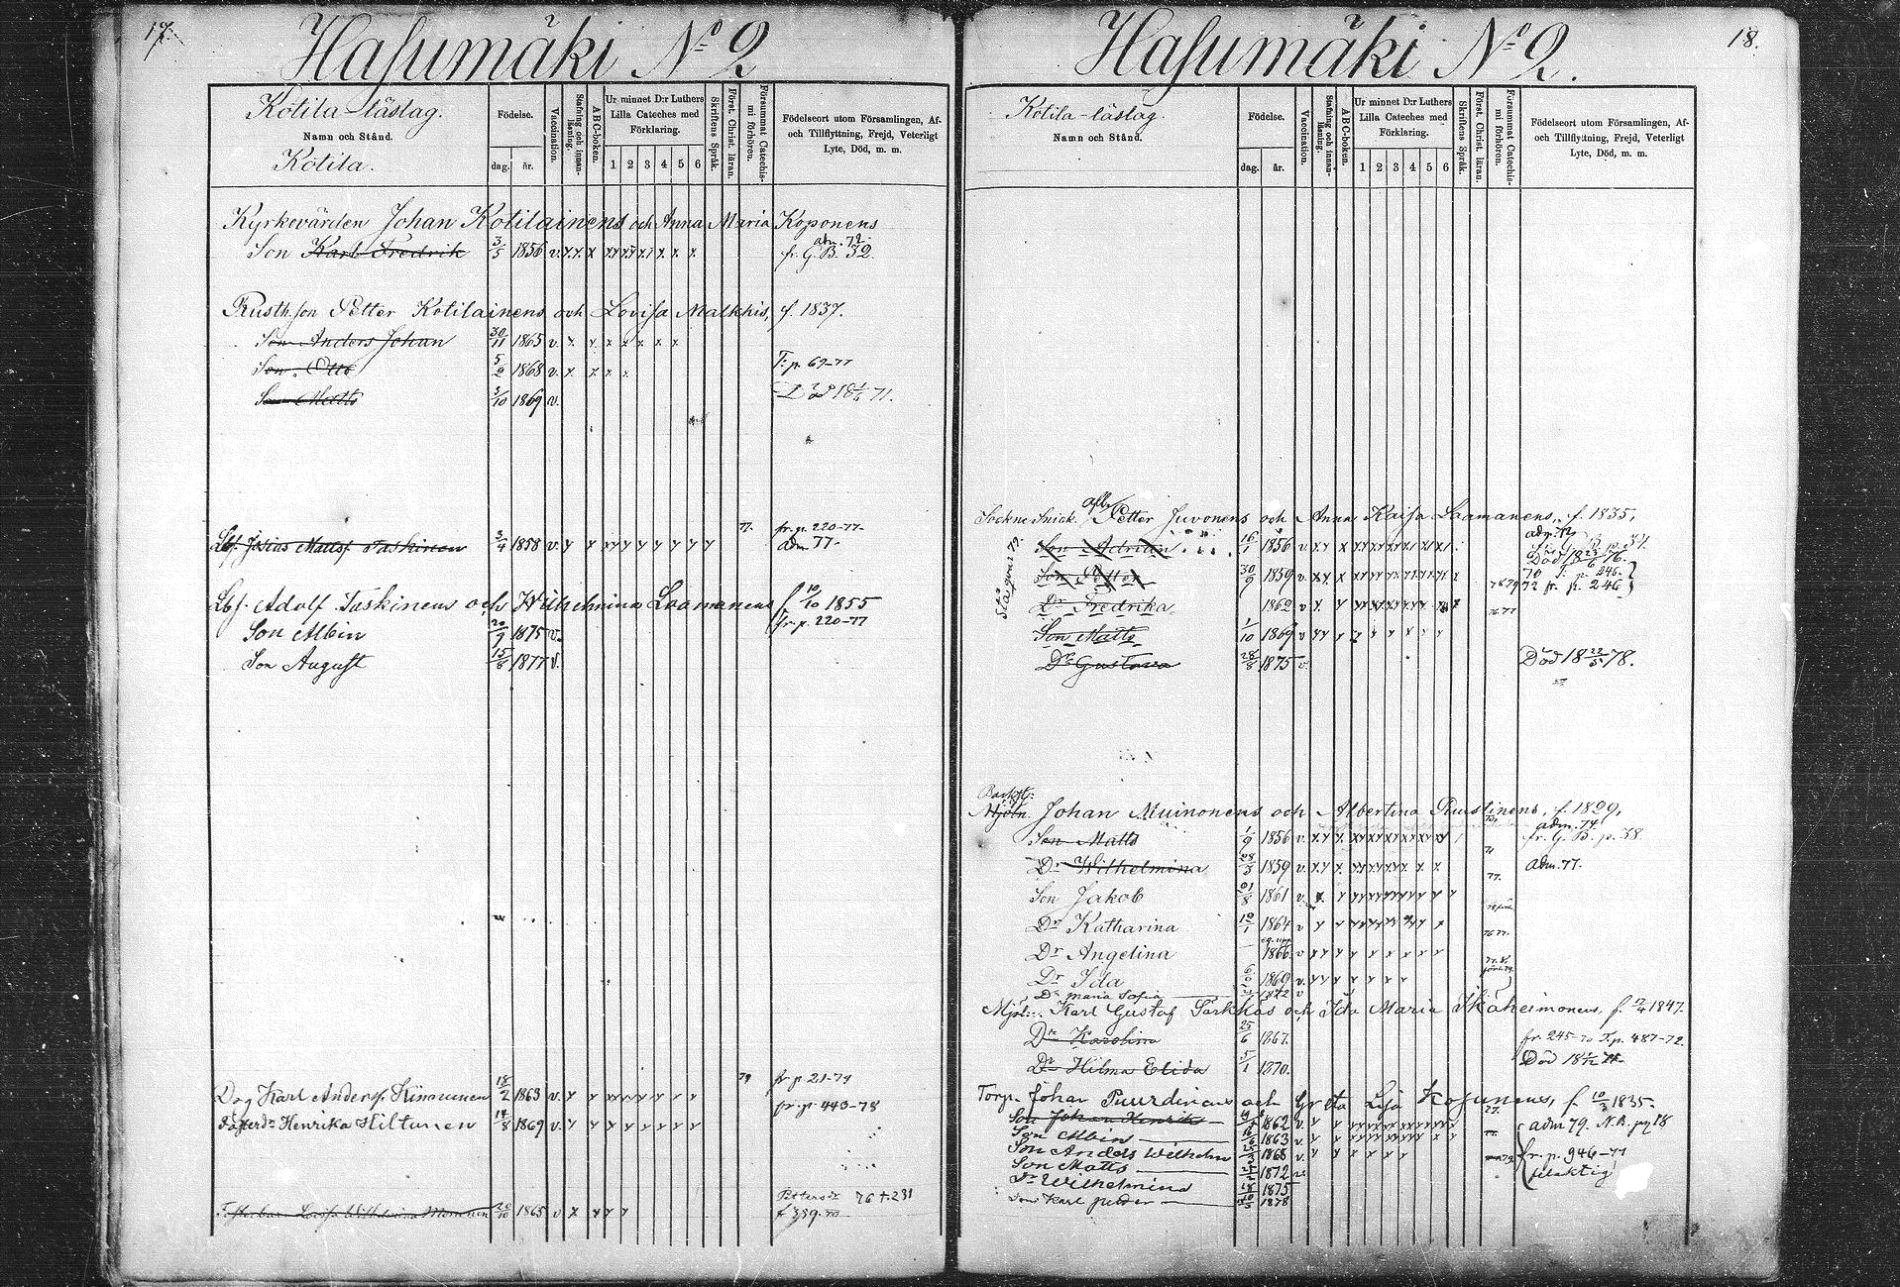 17.
Hasumäki No 2
Kotila-läslag.
Namn och Stånd.
Kotila.
Födelse.
dag. år.
Vaccination.
Stafning och innan-läsning.
ABC-boken.
Ur minnet D:r Luthers Lilla Cateches med Förklaring.
1 2 3 4 5 6
Skriftens Språk.
Först. Christ. läran.
Försummat Catechismi förhören.
Födelseort utom Församlingen, Af- och Tillflyttning, Frejd, Veterligt Lyte, Död, m. m.
Kyrkovärden Johan Kotilainens och Anna Maria Koponens
Son Karl Fredrik 3/5 1856 v. adm. 72. fr. G.B. 32.
Rusth.son Petter Kotilainens och Lovisa Malkkis, f. 1837.
Son Anders Johan 30/11 1865 v.
Son Otto 1868 v. T. p. 69-77
Son Matts 3/10 1869 v. Död 18 71.
Lbf. Josias Mattsf. Taskinen 3/4 1858 v. 77. fr. p. 220-77. adm 77.
Lbf. Adolf Taskinens och Wilhelmina Laamanens f 10/10 1855
Son Albin 20/9 1875 v. fr. p. 220-77
Son August 15/8 1877 v.
Drg Karl Andersf. Kinnunen 18/2 1863 v. 79 fr p. 21-79
Fosterdr Henrika Hiltunen 14/8 1869 v. fr. p. 443-78
Fosterbar. Lovisa Wilhelmina 20/10 1865 v 76 t. 231
f 339.70
18.
Hasumäki No 2.
Kotila-läslag.
Namn och Stånd.
Födelse.
dag. år.
Vaccination.
Stafning och innan-läsning.
ABC-boken.
Ur minnet D:r Luthers Lilla Cateches med Förklaring.
1 2 3 4 5 6
Skriftens Språk.
Först. Christ. läran.
Försummat Catechismi förhören.
Födelseort utom Församlingen, Af- och Tillflyttning, Frejd, Veterligt Lyte, Död, m. m.
Sockne Snick. Petter Juvonens och Anna Kaisa Laamanens, f. 1835,
Son Adrian 16/1 1856 v. adm. 72
Son Petter 30/9 1859 v. Död 18 76.
70 T. p. 246.
78 79 72 fr. p. 246
Dr Fredrika 1862 v 76 77
Son Matts 1/10 1869 v
Dr Gustava 28/8 1875 v. Död 18 22/5 78.
Backst:
Mjöln. Johan Muinonens och Albertina Ruustinens, f. 1829,
Son Matts 1/9 1856 v. adm. 74 fr. G. B. p. 38.
Dr Wilhelmina 28/3 1859 v. 71 adm. 77.
Son Jakob 1861 v. 77.
Dr Katharina 1864 v
Dr Angelina 1866 v 76 77.
Dr Ida 1869 v.
Dr Maria Sofia 1872 v
Mjöln. Karl Gustaf Särkkäs och Ida Maria Ikäheimonens, f. 12/4 1847.
Dr Karolina 25/6 1867. fr. 245-70 T. p. 487-72.
Dr Hilma Elida 5/1 1870. Död 18
Torp. Johan Puurdinens och Greta Lisa Kosunens, f. 10/3 1835.
Son Johan Henrik 1862 v. 77. adm 79. N.B. pag 18
Son Albin 1863 v. 77
Son Anders Wilhelm 1868 v. fr. p. 946-77
Son Matts 25/2 1872 v.
Dr Wilhelmina 18 1875
Son Karl Petter 1878